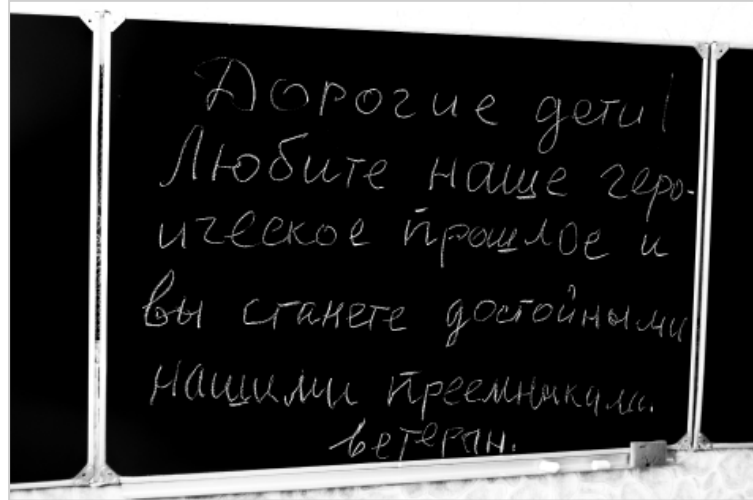 Дорогие дети!
Любите наше геро-
ическое прошлое и
вы станете достойными
нашими преемниками.
ветеран.